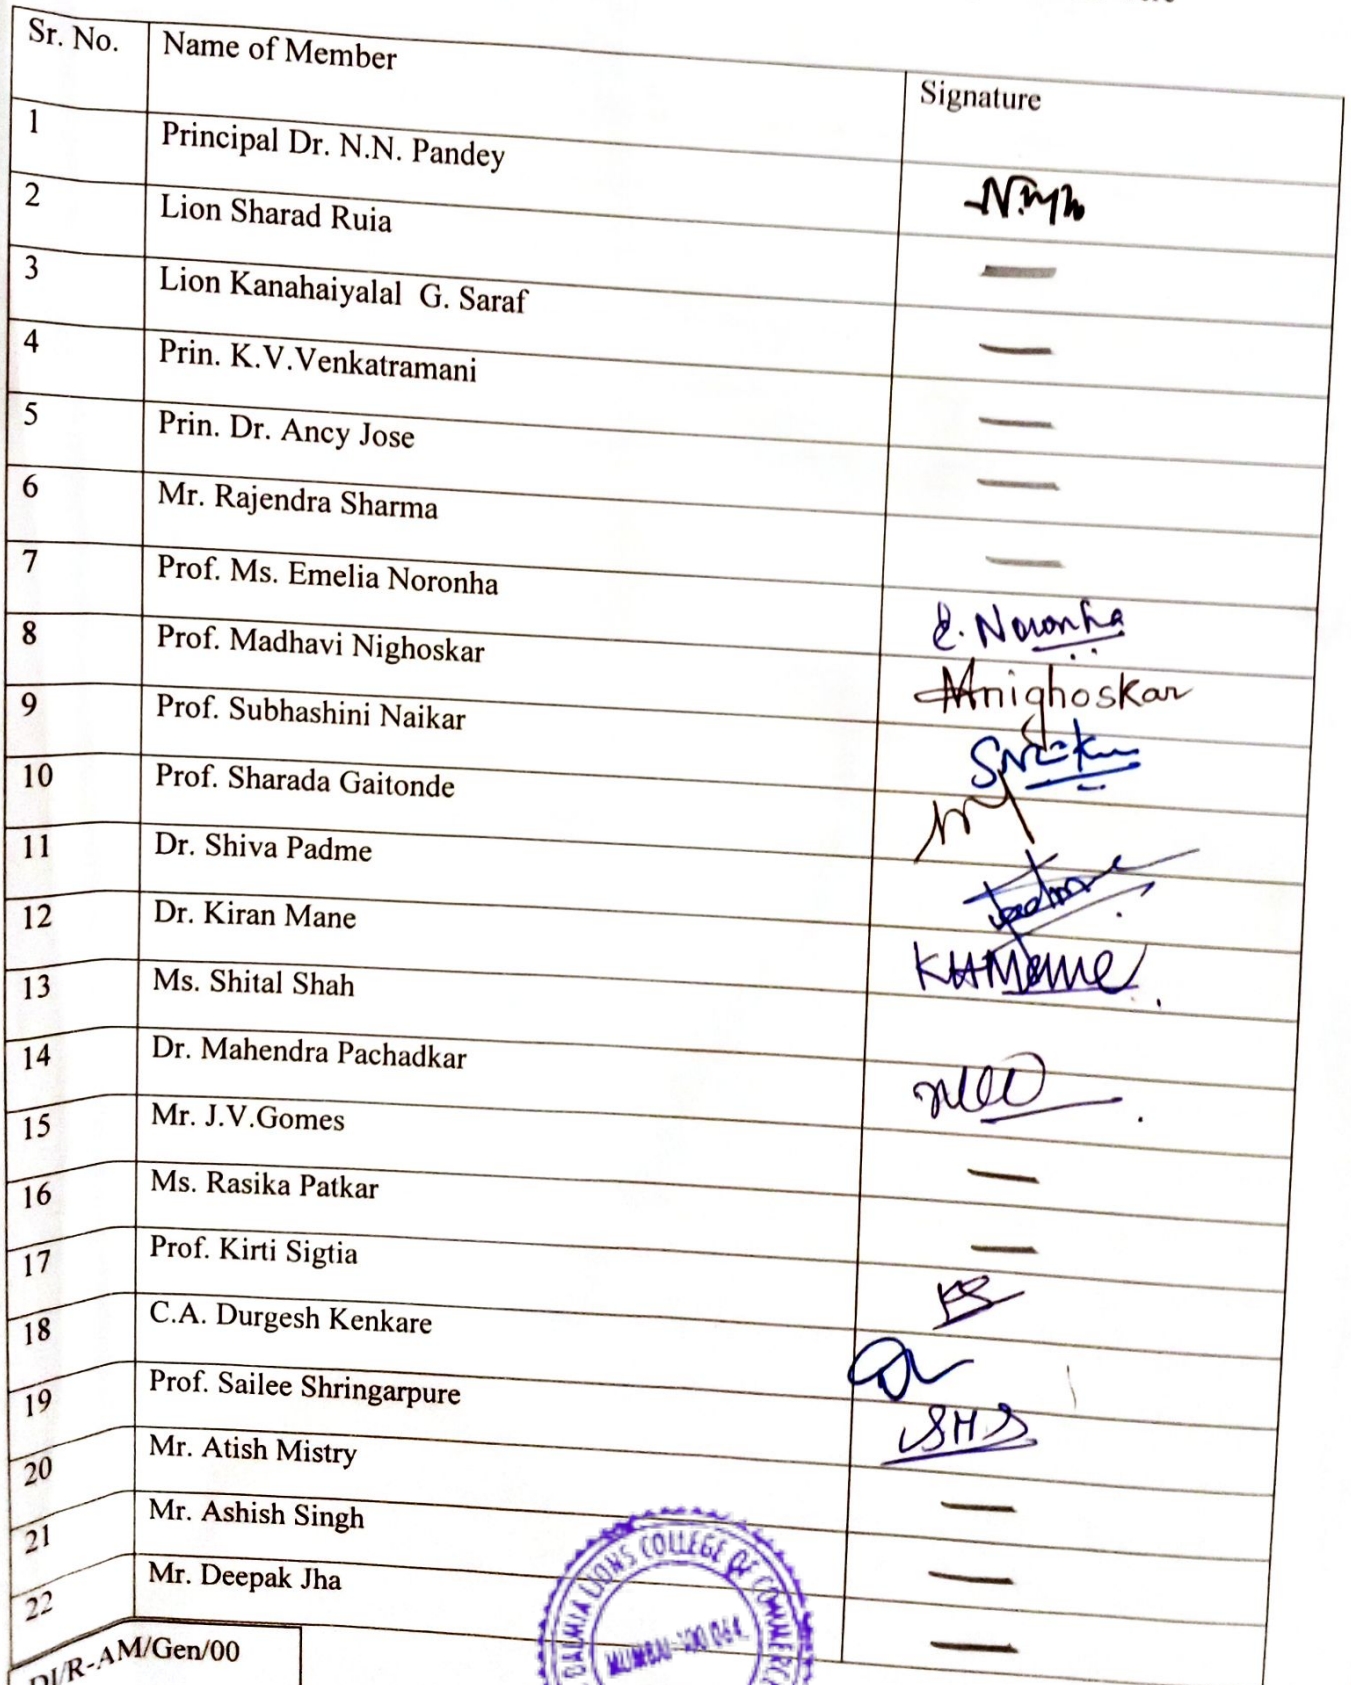 Sr. No. Name of Member Signature
1 Principal Dr. N.N. Pandey
2 Lion Sharad Ruia —
3 Lion Kanahaiyalal G. Saraf —
4 Prin. K.V.Venkatramani —
5 Prin. Dr. Ancy Jose —
6 Mr. Rajendra Sharma —
7 Prof. Ms. Emelia Noronha E. Noronha
8 Prof. Madhavi Nighoskar Mnighoskar
9 Prof. Subhashini Naikar
10 Prof. Sharada Gaitonde
11 Dr. Shiva Padme
12 Dr. Kiran Mane
13 Ms. Shital Shah
14 Dr. Mahendra Pachadkar
15 Mr. J.V.Gomes —
16 Ms. Rasika Patkar —
17 Prof. Kirti Sigtia KS
18 C.A. Durgesh Kenkare
19 Prof. Sailee Shringarpure SHS
20 Mr. Atish Mistry —
21 Mr. Ashish Singh —
22 Mr. Deepak Jha —
DALMIA LIONS COLLEGE OF COMMERC
MUMBAI-400 064.
DI/R-AM/Gen/00